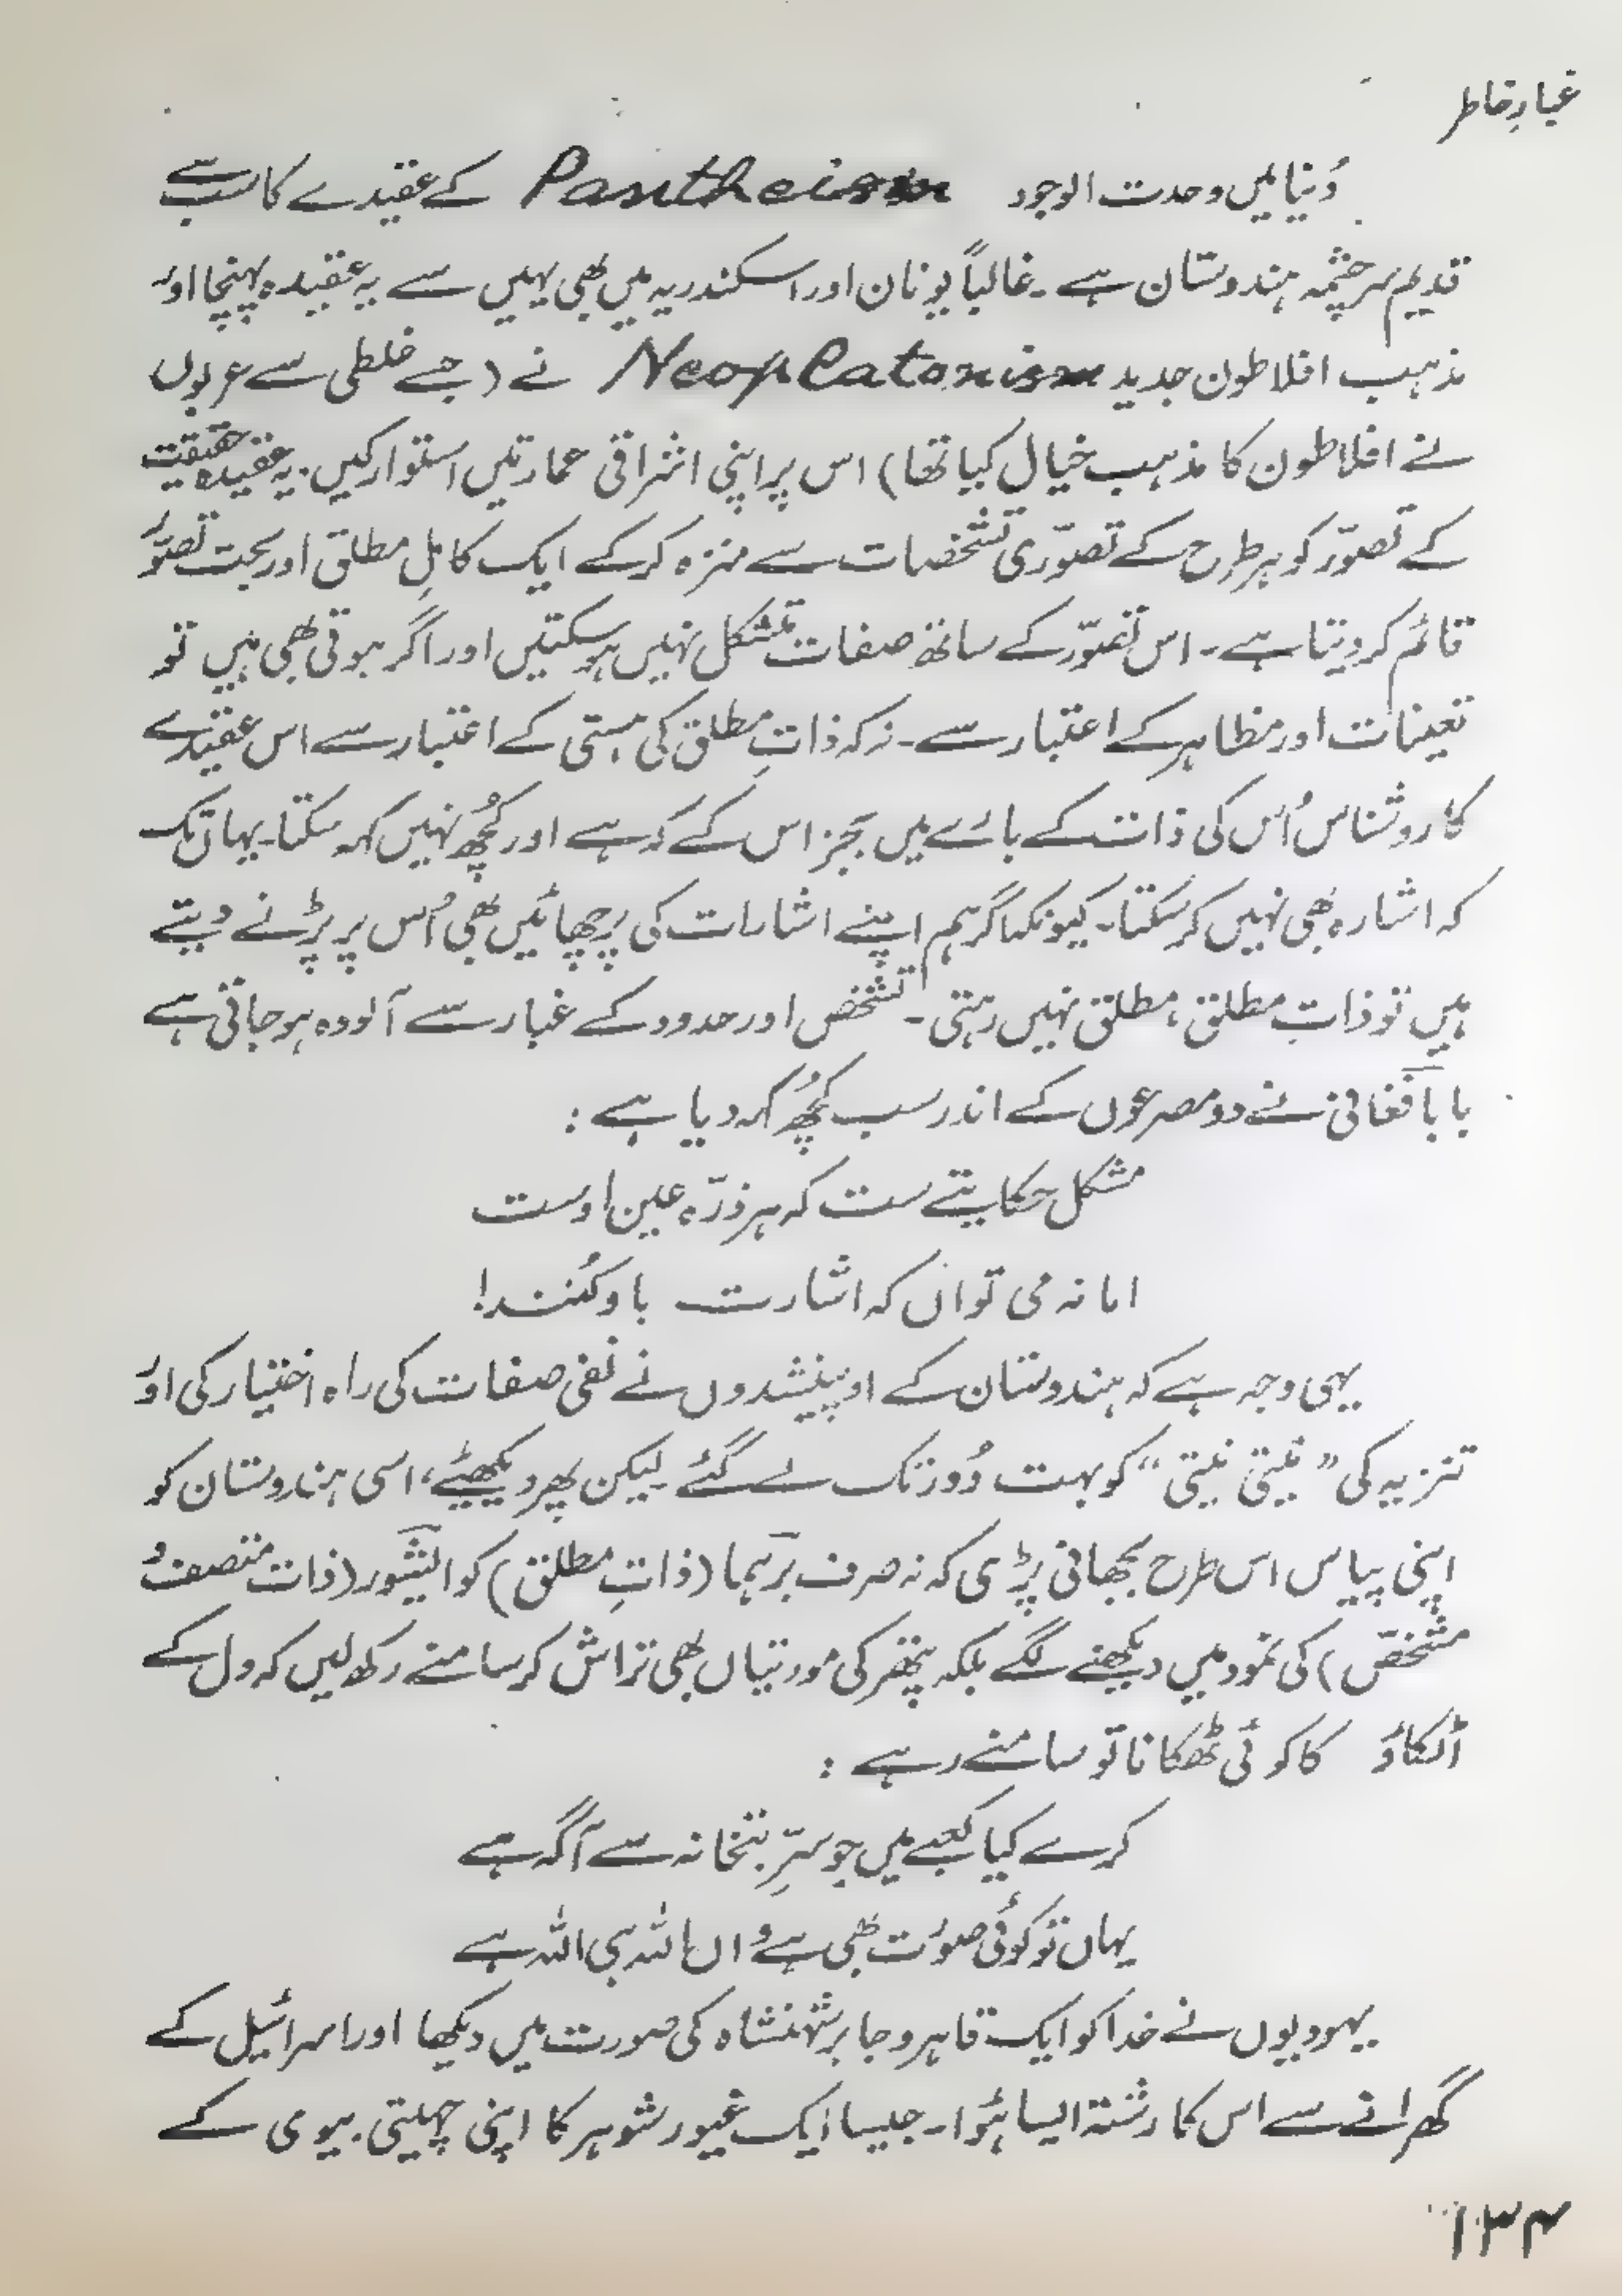 غبارِ خاطر
دُنیا میں وحدت الوجود Pantheism کے عقیدے کا سب سے
قدیم سرچشمہ ہندوستان ہے۔ غالباً یونان اور اسکندریہ میں بھی یہیں سے یہ عقیدہ پہنچا اور
مذہب افلاطون جدید Neoplatonism نے (جسے غلطی سے عربوں
نے افلاطون کا مذہب خیال کیا تھا) اس پر اپنی اشراقی عمارتیں استوار کیں۔ یہ عقیدہ حقیقت
کے تصوّر کو ہر طرح کے تصوّری تشخصات سے منزہ کر کے ایک کاملِ مطلق اور بحت تصوّر
قائم کر دیتا ہے۔ اس تصوّر کے ساتھ صفات متشکل نہیں ہو سکتیں اور اگر ہوتی بھی ہیں تو
تعینات اور مظاہر کے اعتبار سے۔ نہ کہ ذاتِ مطلق کی ہستی کے اعتبار سے اس عقیدے
کا روشناس اُس کی ذات کے بارے میں بجز اس کے کہ ہے اور کُچھ نہیں کہہ سکتا۔ یہاں تک
کہ اشارہ بھی نہیں کر سکتا۔ کیونکہ اگر ہم اپنے اشارات کی پرچھائیں بھی اُس پر پڑنے دیتے
ہیں تو ذاتِ مطلق، مطلق نہیں رہتی۔ تشخص اور حدود کے غبار سے آلودہ ہو جاتی ہے
بابا فغانی نے دو مصرعوں کے اندر سب کُچھ کہہ دیا ہے :
مشکل حکایتے ست کہ ہر ذرّہ عین اوست
اما نہ می تواں کہ اشارت باو کُنند!
یہی وجہ ہے کہ ہندوستان کے اوپنیشدوں نے نفی صفات کی راہ اختیار کی اور
تنزیہ کی ”نیتی نیتی“ کو بہت دُور تک لے گئے۔ لیکن پھر دیکھیئے، اسی ہندوستان کو
اپنی پیاس اس طرح بجھانی پڑی کہ نہ صرف برہما (ذاتِ مطلق) کو ایشور (ذات متصف و
مشخّص) کی نمود میں دیکھنے لگے بلکہ پتھر کی مورتیاں بھی تراش کر سامنے رکھ لیں کہ دل کے
اٹکاؤ کا کوئی ٹھکانا تو سامنے رہے :
کرے کیا کعبے میں جو سرِّ بتخانہ سے آگہ ہے
یہاں تو کوئی صورت بھی ہے واں اللہ ہی اللہ ہے
یہودیوں نے خدا کو ایک قاہر و جابر شہنشاہ کی صورت میں دیکھا اور اسرائیل کے
گھرانے سے اس کا رشتۃ ایسا ہُوا۔ جیسا ایک غیور شوہر کا اپنی چہیتی بیوی کے
۱۳۴